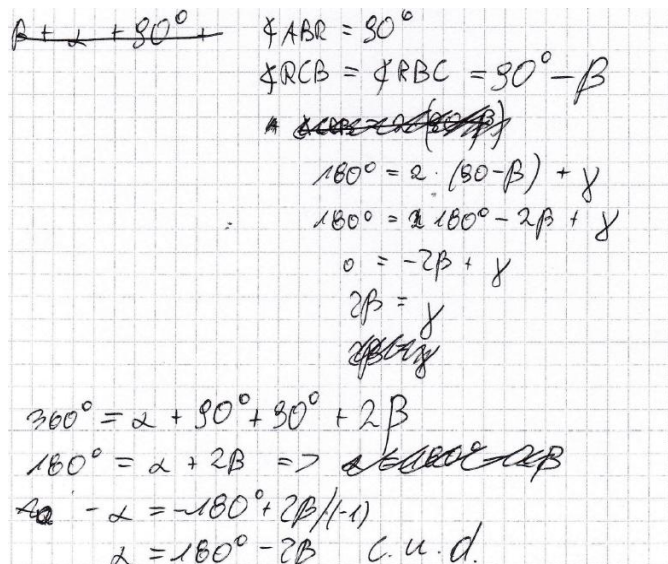 β + α + 90° +
∢ABR = 90°
∢RCB = ∢RBC = 90° - β
180° = 2 · (90 - β) + γ
180° = 180° - 2β + γ
0 = -2β + γ
2β = γ
360° = α + 90° + 90° + 2β
180° = α + 2β =>
-α = -180° + 2β /(-1)
α = 180° - 2β c.u.d.